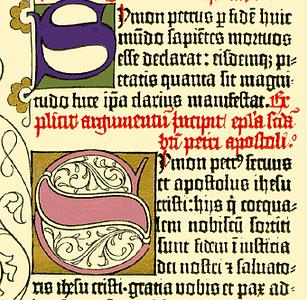 Symon petrus ꝑ fidē huic
mūdo sapiētes mortuos
esse declarat: eisdemq; pi-
etatis quanta sit magni-
tudo luce ip̄a clarius manifestat. Ex-
plicit argumentū incipit ep̄la sc̄da
bt̄i petri apostoli.
Symon petrꝰ seruus
et apostolus ihesu
cristi: hijs q̄ coequa-
lem nobiscū sortiti
sunt fidem ī iusticia
dei nostri ⁊ saluato-
ris ihesu cristi. gratia vobis et pax ad-